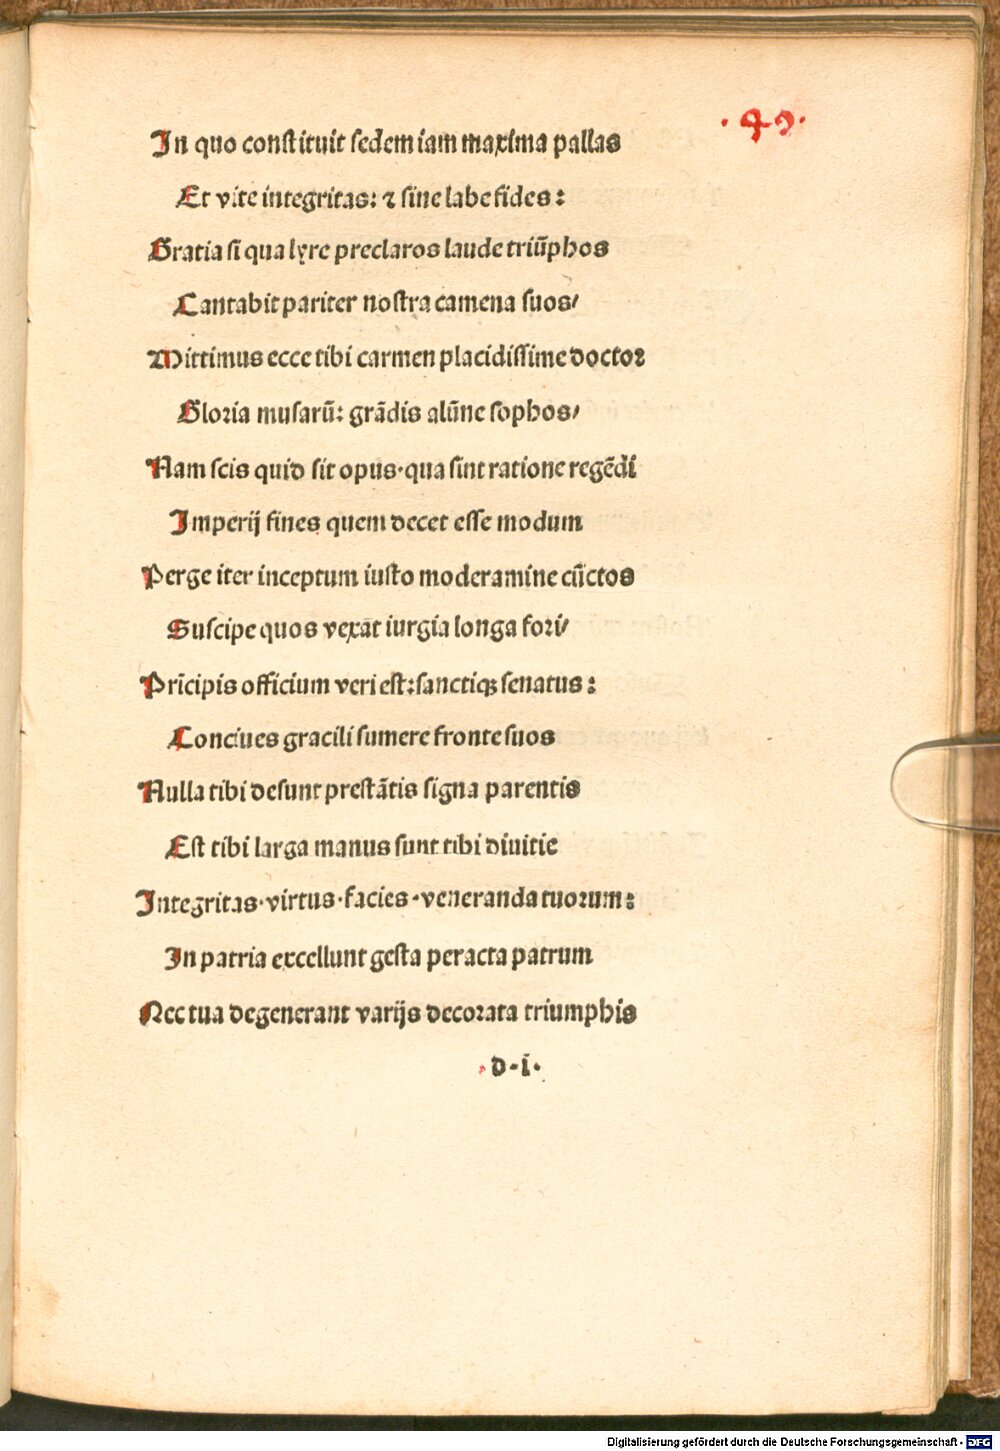 · 49 ·
In quo constituit sedem iam maxima pallas
Et vite integritas: ⁊ sine labe fides:
Gratia si qua lyre preclaros laude triūphos
Cantabit pariter nostra camena suos/
Mittimus ecce tibi carmen placidissime doctor
Gloria musarū: grādis alūne sophos/
Nam scis quid sit opus·qua sint ratione regēdi
Imperij fines quem decet esse modum
Perge iter inceptum iusto moderamine cūctos
Suscipe quos vexāt iurgia longa fori/
Prīcipis officium veri est:sanctiqꝫ senatus:
Conciues gracili sumere fronte suos
Nulla tibi desunt prestātis signa parentis
Est tibi larga manus sunt tibi diuitie
Integritas·virtus·facies·veneranda tuorum:
In patria excellunt gesta peracta patrum
Nec tua degenerant varijs decorata triumphis
·d·i·
Digitalisierung gefördert durch die Deutsche Forschungsgemeinschaft - DFG